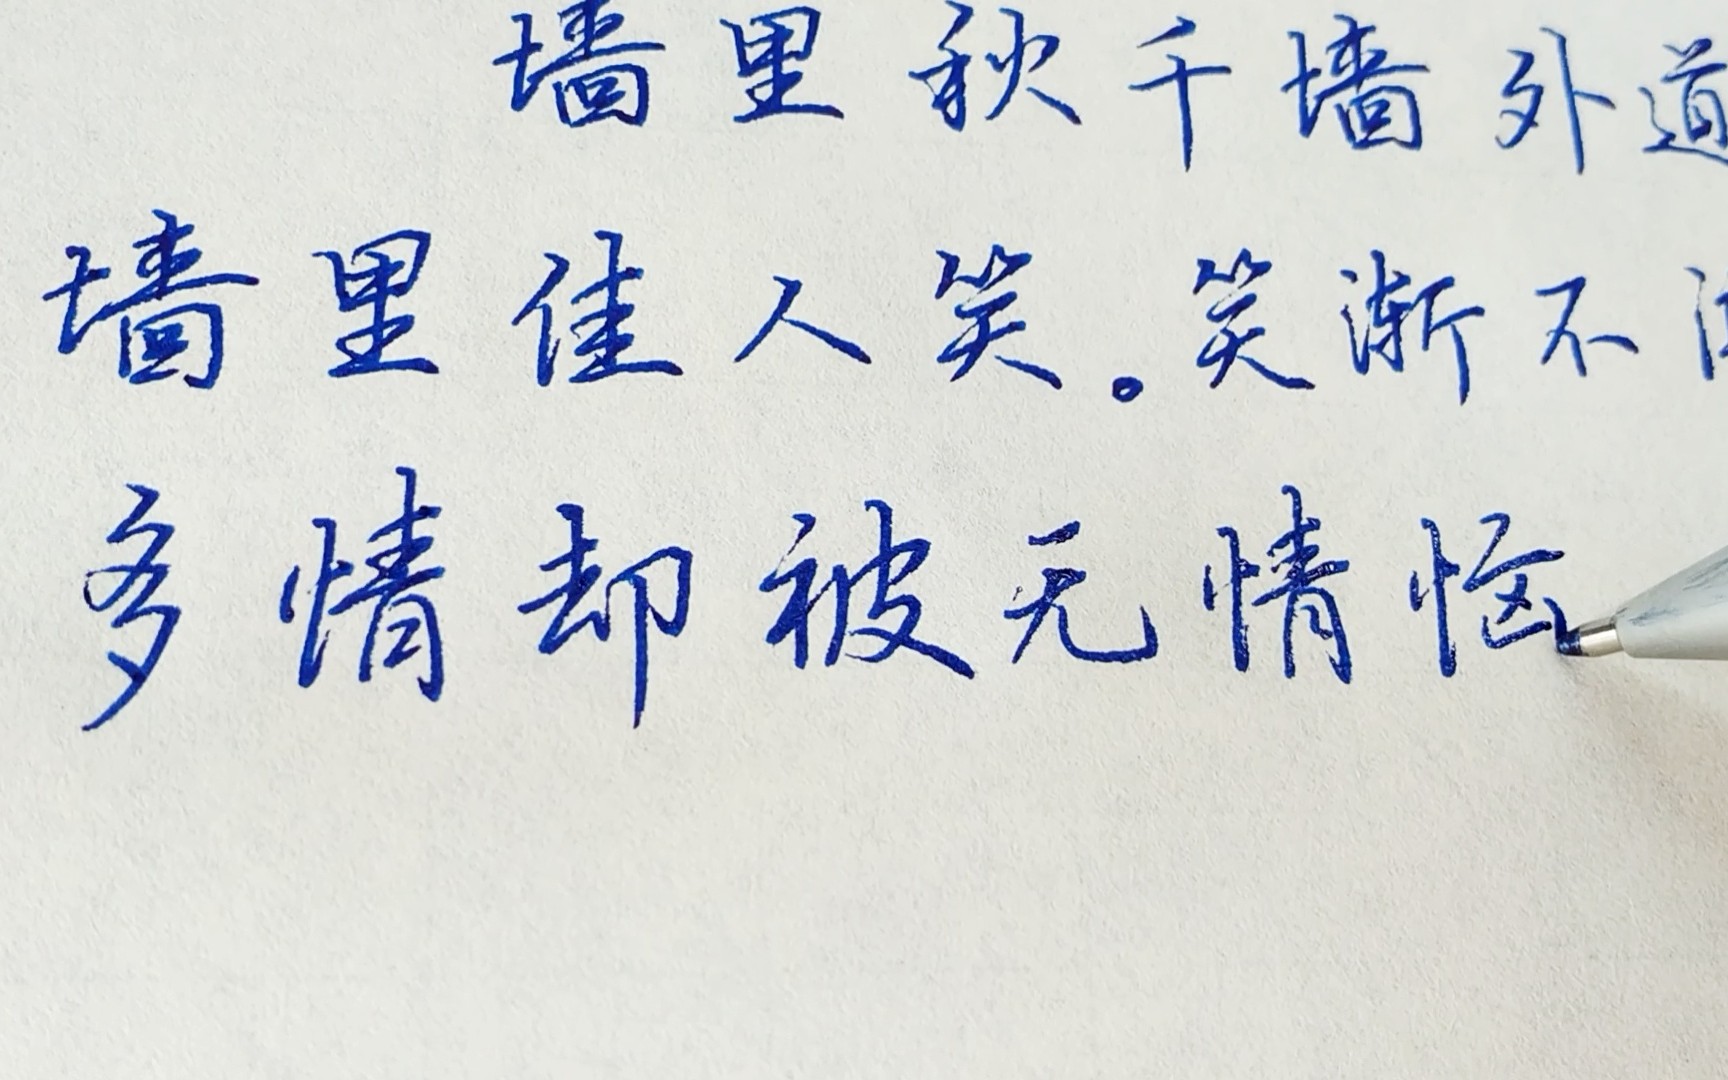 墙里秋千墙外道
墙里佳人笑。笑渐不
多情却被无情恼